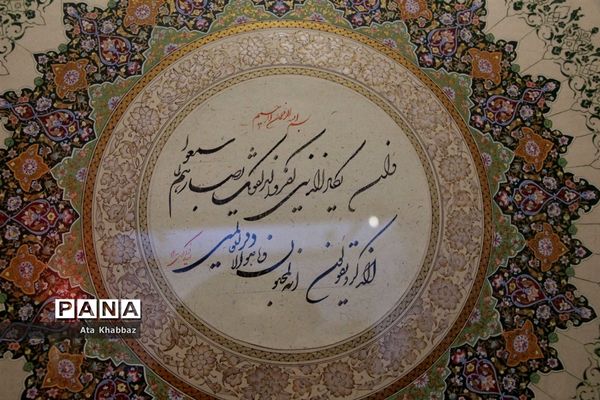 بسم الله الرحمن الرحیم
وان یکاد الذین کفروا لیزلقونک بابصارهم لما سمعوا
الذکر و یقولون انه لمجنون و ما هو الا ذکر للعالمین
PANA
Ata Khabbaz